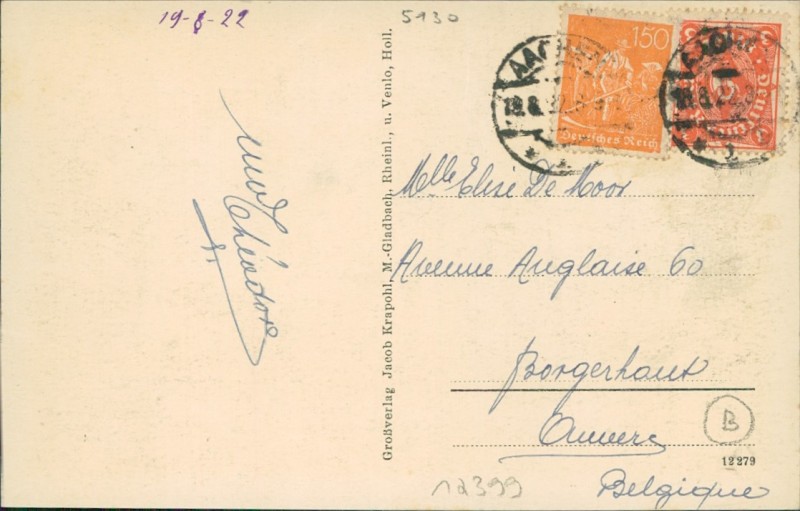 19-8-22
5130
AACHEN
150
Deutsches Reich
3
Großverlag Jacob Krapohl, M.-Gladbach, Rheinl., u. Venlo, Holl.
Théodor
Melle Elise De Moor
Avenue Anglaise 60
Borgerhout
Anvers
B
12279
Belgique
12399